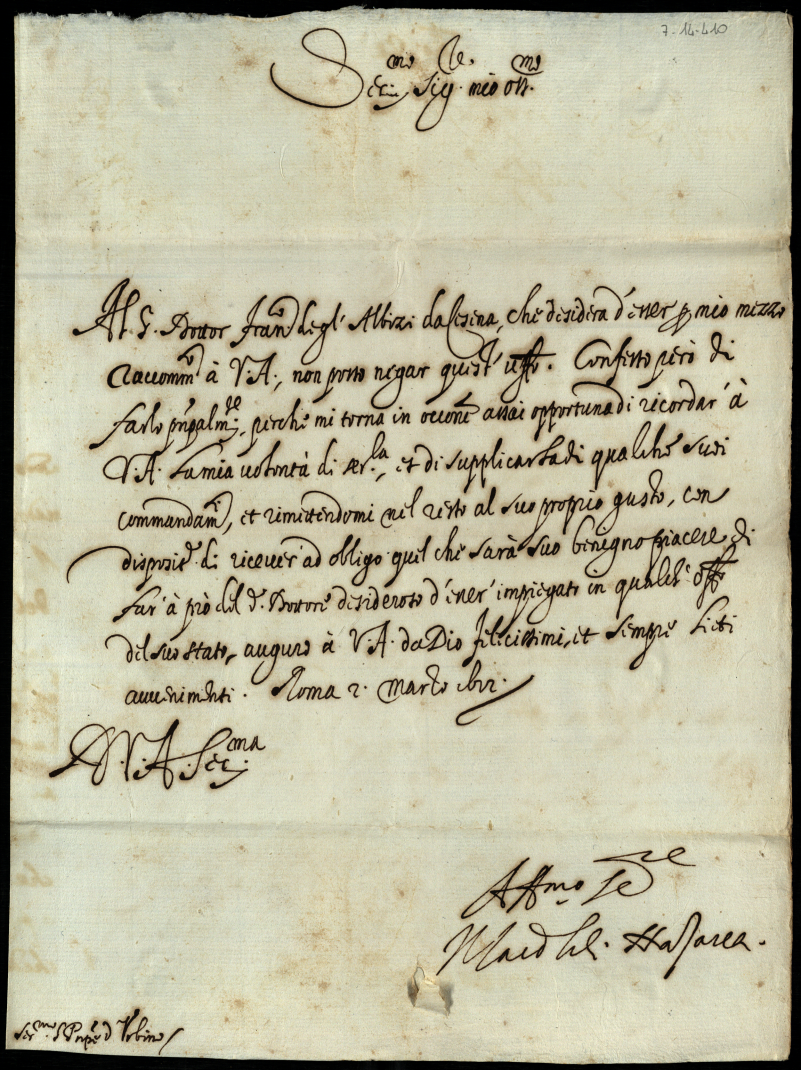 7-14-410
Ser.mo Sig.re mio oss.mo
Al S.r Dottor Fran.co degl' Albizi da Cesena, che desidera d'esser p mio mezzo
raccomm.to à V.A., non posso negar quest' uff.o. Confesso però di
farlo pñpalm.te, perche mi torna in occone assai opportuna di ricordar' à
V.A. la mia volontà di ser.la, et di supplicarla di qualche suoi
commandam.ti, et rimettendomi nel resto al suo proprio gusto, con
disposit.e di ricever' ad obligo quel che sarà suo benegno piacere di
far' à prò del d.o Dottore desideroso d'esser' impiegato in qualch' off.o
del suo stato, auguro à V.A. da Dio felicissimi, et sempre lieti
avvenimenti. Roma 2. Marzo
D. V. A. Ser.ma
Aff.mo Se.re
Ser.mo S. Pnpe d'Urbino